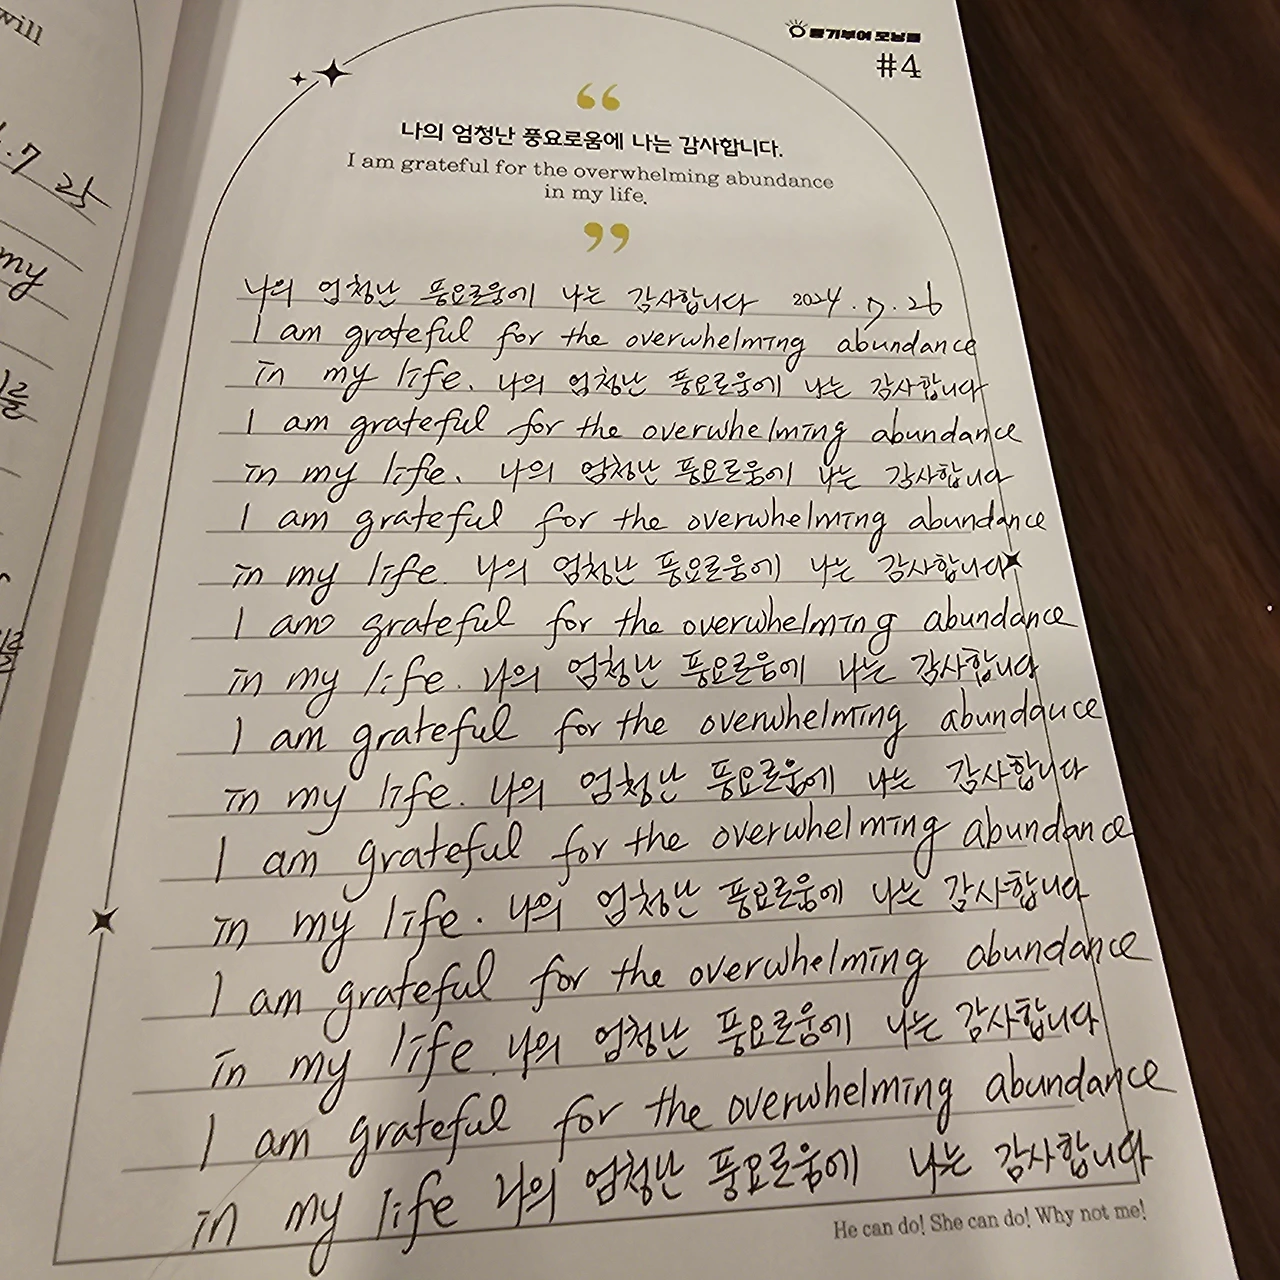 will
7 라
my
를
동기부여 모닝콜
#4
“
나의 엄청난 풍요로움에 나는 감사합니다.
I am grateful for the overwhelming abundance
in my life.
”
나의 엄청난 풍요로움에 나는 감사합니다 2024. 7. 26
I am grateful for the overwhelming abundance
in my life. 나의 엄청난 풍요로움에 나는 감사합니다
I am grateful for the overwhelming abundance
in my life. 나의 엄청난 풍요로움에 나는 감사합니다
I am grateful for the overwhelming abundance
in my life. 나의 엄청난 풍요로움에 나는 감사합니다
I am grateful for the overwhelming abundance
in my life. 나의 엄청난 풍요로움에 나는 감사합니다
I am grateful for the overwhelming abundance
in my life. 나의 엄청난 풍요로움에 나는 감사합니다
I am grateful for the overwhelming abundance
in my life. 나의 엄청난 풍요로움에 나는 감사합니다
I am grateful for the overwhelming abundance
in my life. 나의 엄청난 풍요로움에 나는 감사합니다
I am grateful for the overwhelming abundance
in my life 나의 엄청난 풍요로움에 나는 감사합니다
He can do! She can do! Why not me!